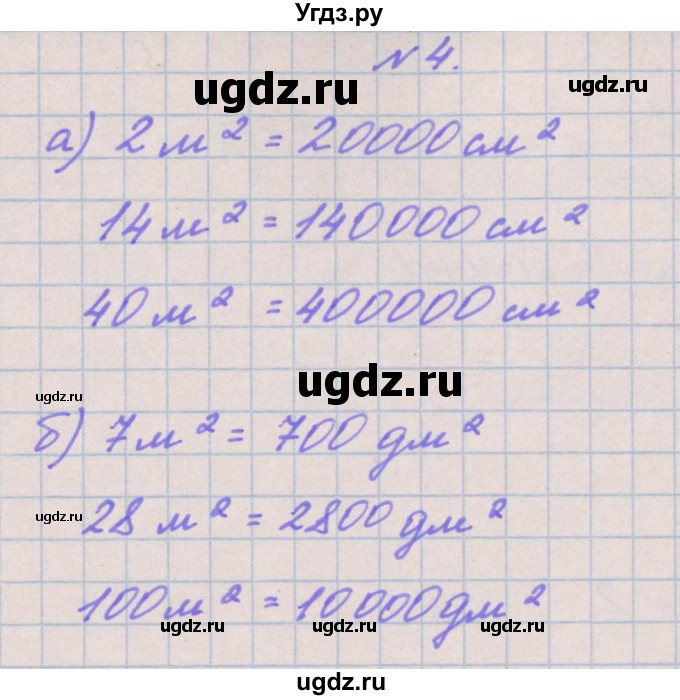 Угдз.ру
№ 4.
ugdz.ru
ugdz.ru
а) 2 м² = 20000 см²
14 м² = 140000 см²
40 м² = 400000 см²
ugdz.ru
ugdz.ru
б) 7 м² = 700 дм²
ugdz.ru
28 м² = 2800 дм²
100 м² = 10000 дм²
ugdz.ru
ugdz.ru
ugdz.ru